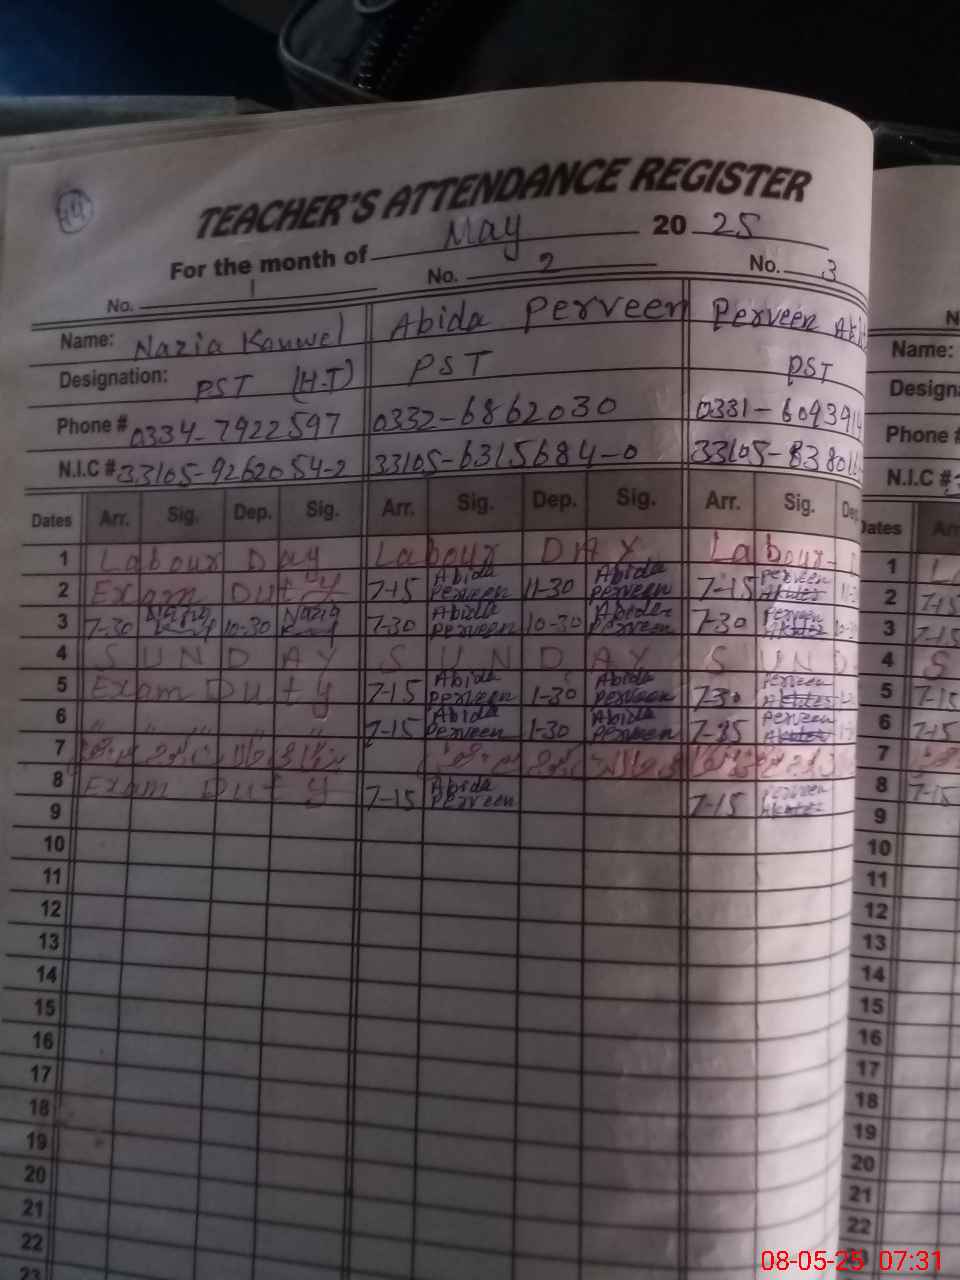 14
TEACHER'S ATTENDANCE REGISTER
For the month of May 20 25
No. 1 No. 2 No. 3
Name: Nazia Kanwel Abida Perveen Perveen
Designation: PST (H-T) PST PST
Phone # 0334-7922597 0332-6862030 0331-609391
N.I.C # 33105-9262054-2 33105-6315684-0 33105-8380
Dates Arr. Sig. Dep. Sig. Arr. Sig. Dep. Sig. Arr. Sig. De
1 Labour Day Labour DAY Labour
2 Exam Duty 7-15 Abida Perveen 11-30 Abida Perveen 7-15 Perveen Akhter
3 7-30 Nazia 10-30 Nazia 7-30 Abida Perveen 10-30 Abida Perveen 7-30 Perveen Akhter
4 SUNDAY SUNDAY SUND
5 Exam Duty 7-15 Abida Perveen 1-30 Abida Perveen 7-30 Perveen Akhter
6 " " " " 7-15 Abida Perveen 1-30 Abida Perveen 7-35 Perveen Akhter
7
8 Exam Duty 7-15 Abida Perveen 7-15 Perveen Akhter
9
10
11
12
13
14
15
16
17
18
19
20
21
22
23
N
Name:
Design
Phone #
N.I.C #
Dates Arr
1
2 7-15
3 7-15
4 S
5 7-15
6 7-15
7
8 7-15
9
10
11
12
13
14
15
16
17
18
19
20
21
22
08-05-25 07:31